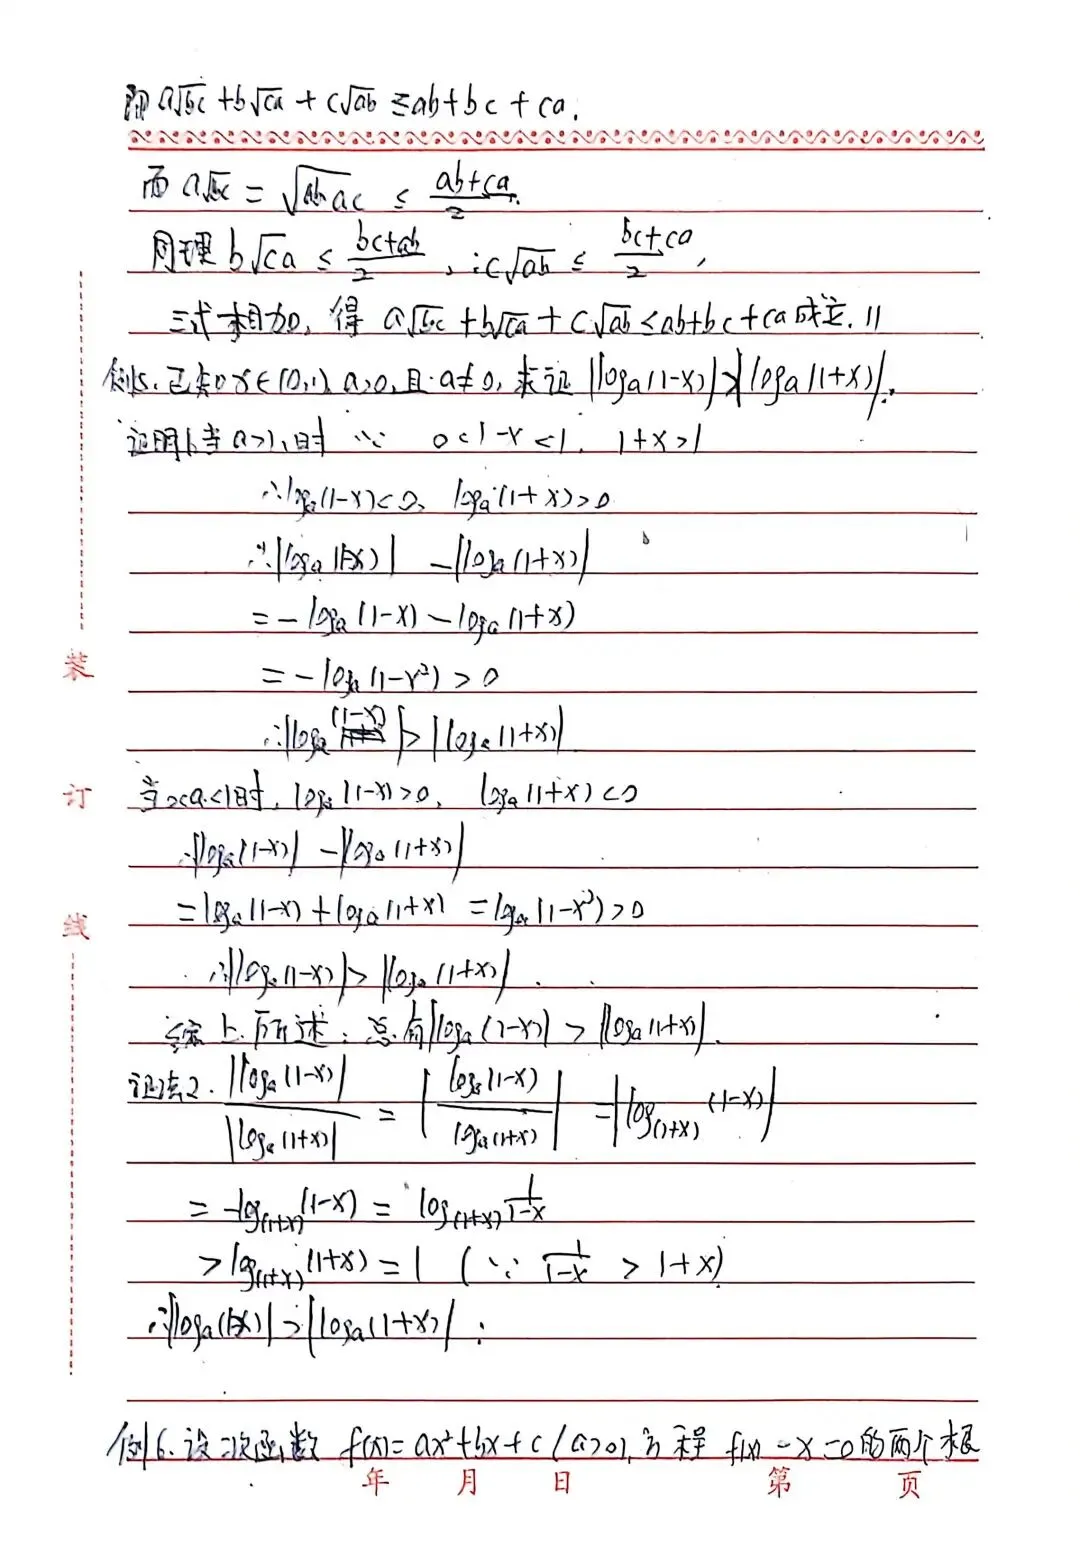 即 a√bc + b√ca + c√ab ≤ ab + bc + ca.
而 a√bc = √ab·ac ≤ (ab+ca)/2.
同理 b√ca ≤ (bc+ab)/2, c√ab ≤ (bc+ca)/2,
三式相加, 得 a√bc + b√ca + c√ab ≤ ab + bc + ca 成立. //
例5. 已知 x∈(0,1), a>0, 且 a≠0, 求证 |logₐ(1-x)| > |logₐ(1+x)|.
证明1. 当 a>1 时 ∵ 0<1-x<1. 1+x>1
∴ logₐ(1-x)<0, logₐ(1+x)>0
∴ |logₐ(1-x)| - |logₐ(1+x)|
= -logₐ(1-x) - logₐ(1+x)
= -logₐ(1-x²) > 0
∴ |logₐ(1-x)| > |logₐ(1+x)|
当 0<a<1 时, logₐ(1-x)>0, logₐ(1+x)<0
∴ |logₐ(1-x)| - |logₐ(1+x)|
= logₐ(1-x) + logₐ(1+x) = logₐ(1-x²) > 0
∴ |logₐ(1-x)| > |logₐ(1+x)|.
综上所述: 总有 |logₐ(1-x)| > |logₐ(1+x)|.
证法2. |logₐ(1-x)| / |logₐ(1+x)| = |logₐ(1-x) / logₐ(1+x)| = |log₍₁₊ₓ₎(1-x)|
= -log₍₁₊ₓ₎(1-x) = log₍₁₊ₓ₎ 1/(1-x)
> log₍₁₊ₓ₎(1+x) = 1 (∵ 1/(1-x) > 1+x)
∴ |logₐ(1-x)| > |logₐ(1+x)|.
例6. 设二次函数 f(x) = ax²+bx+c (a>0), 方程 f(x)-x=0 的两个根
年 月 日 第 页
装
订
线